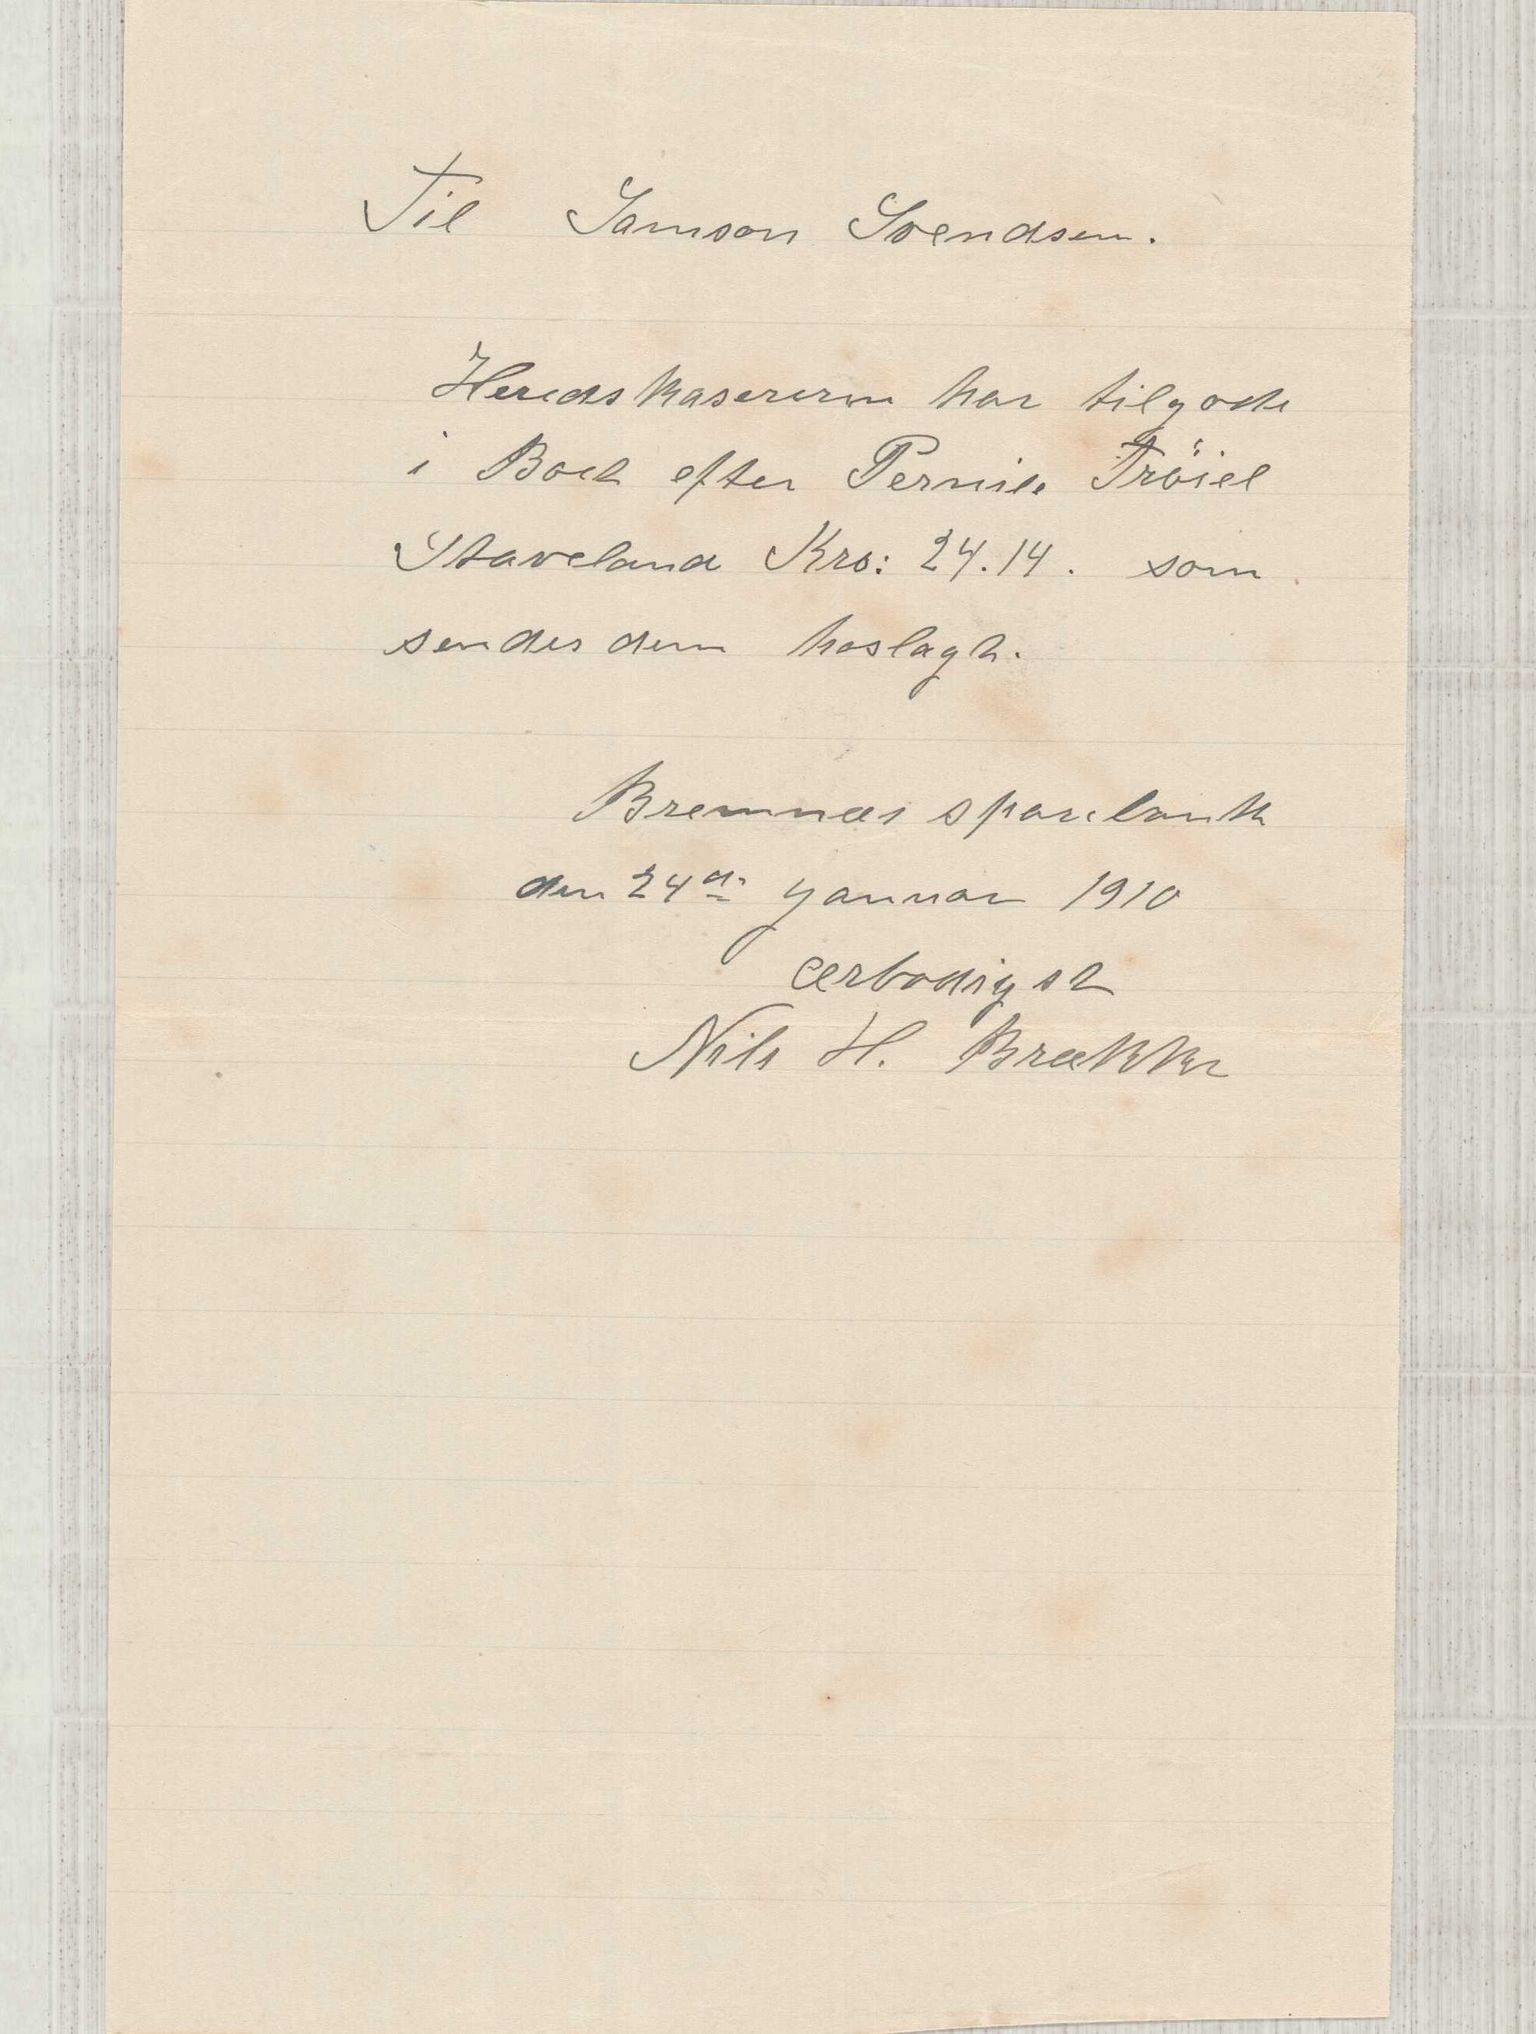 Til Samson Svendsen.
Heredskasereren har tilgode
i Boet efter Pernile Tröiel
Staveland Kro: 24.14. som
sendes dem hoslagt.
Bremnæs sparebank
den 24de januar 1910
ærbødigst
Nils H. Brækker